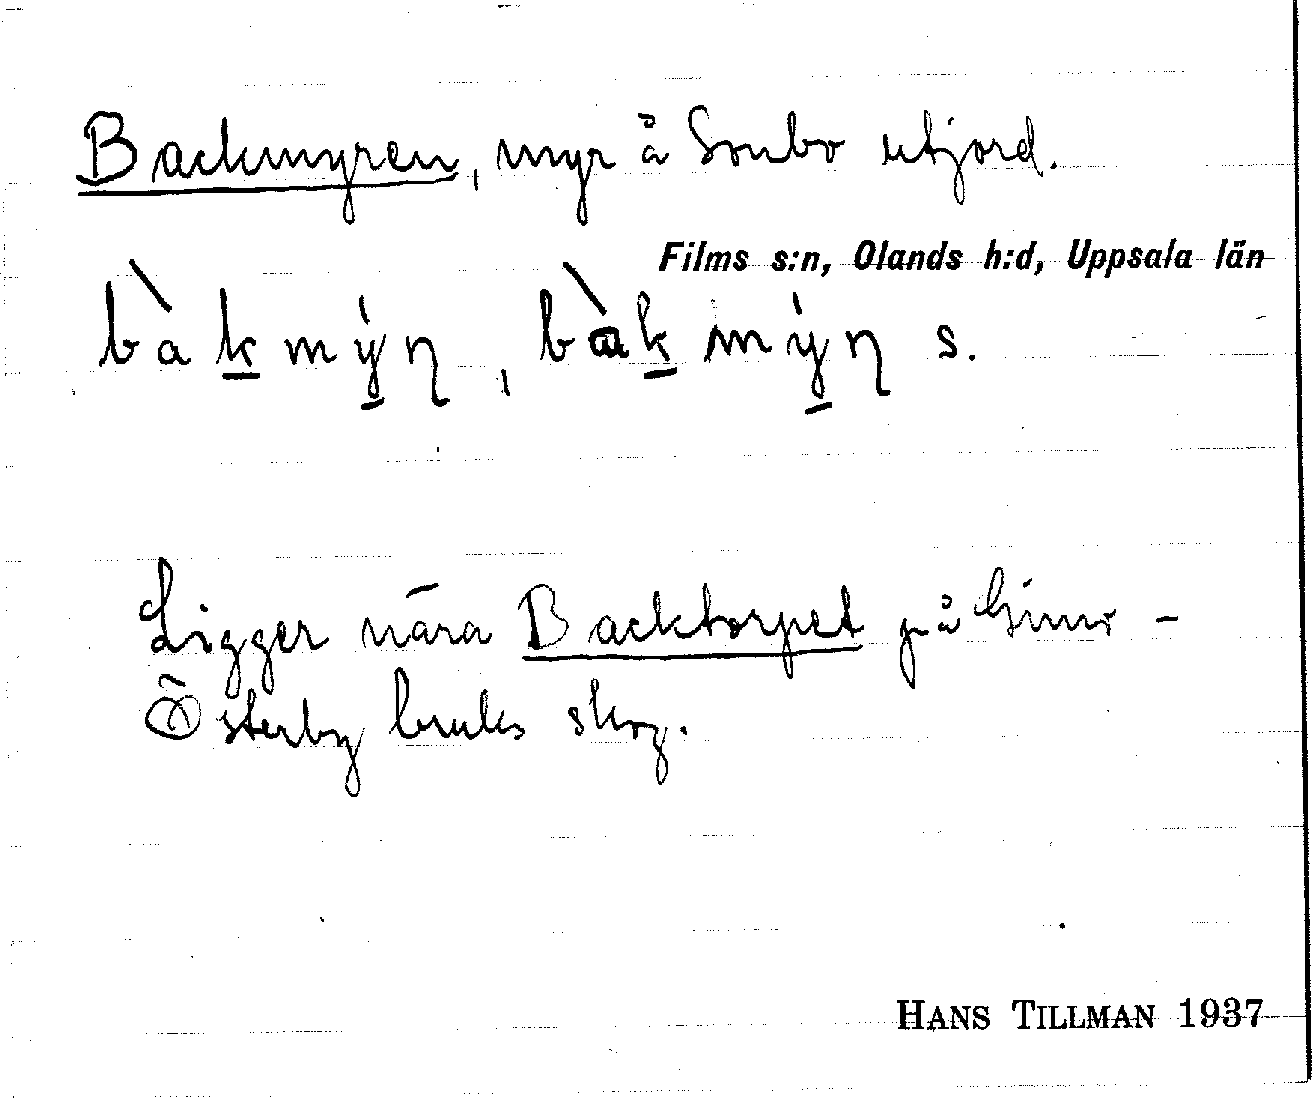 Backmyren, myr å Sonbo utjord.
Films s:n, Olands h:d, Uppsala län
bàk̲mẏ̲ɳ, bàk̲mẏ̲ɳ s.
Ligger nära Backtorpet på Gimo-
Österby bruks skog.
HANS TILLMAN 1937